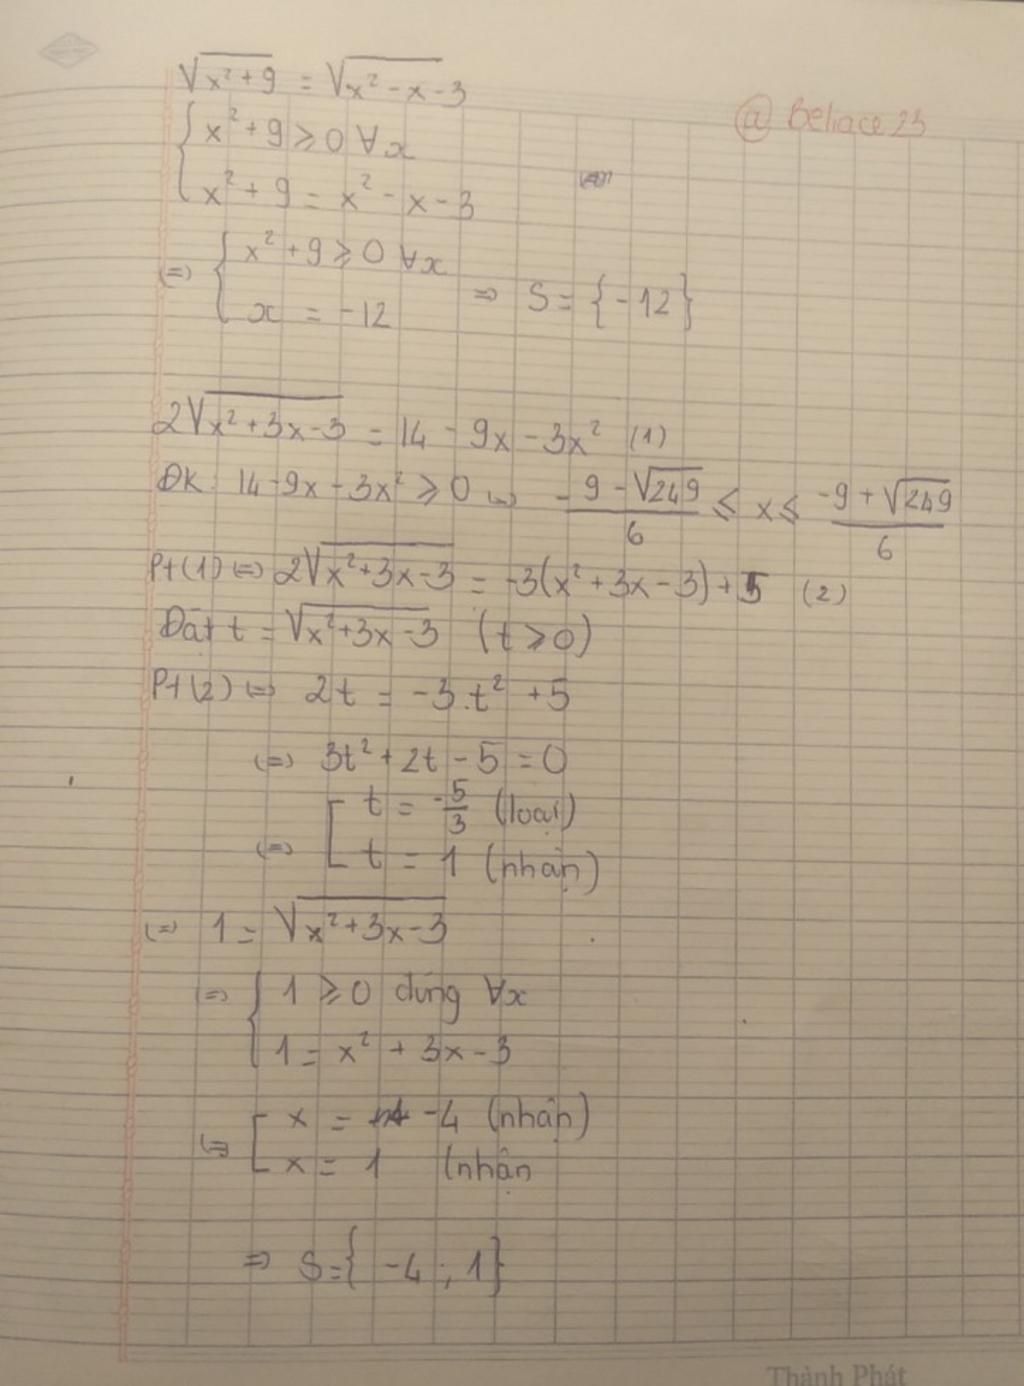 √(x² + 9) = √(x² - x - 3)
@ Beliace23
{ x² + 9 ≥ 0 ∀x
x² + 9 = x² - x - 3
(=) { x² + 9 ≥ 0 ∀x
x = -12 => S = {-12}
2√(x² + 3x - 3) = 14 - 9x - 3x² (1)
ĐK: 14 - 9x - 3x² ≥ 0 (=) (-9 - √249)/6 ≤ x ≤ (-9 + √249)/6
Pt (1) (=) 2√(x² + 3x - 3) = -3(x² + 3x - 3) + 5 (2)
Đặt t = √(x² + 3x - 3) (t ≥ 0)
Pt (2) (=) 2t = -3.t² + 5
(=) 3t² + 2t - 5 = 0
(=) [ t = -5/3 (loại)
t = 1 (nhận)
(=) 1 = √(x² + 3x - 3)
(=) { 1 ≥ 0 đúng ∀x
1 = x² + 3x - 3
(=) [ x = -4 (nhận)
x = 1 (nhận
=> S = {-4 ; 1}
Thành Phát